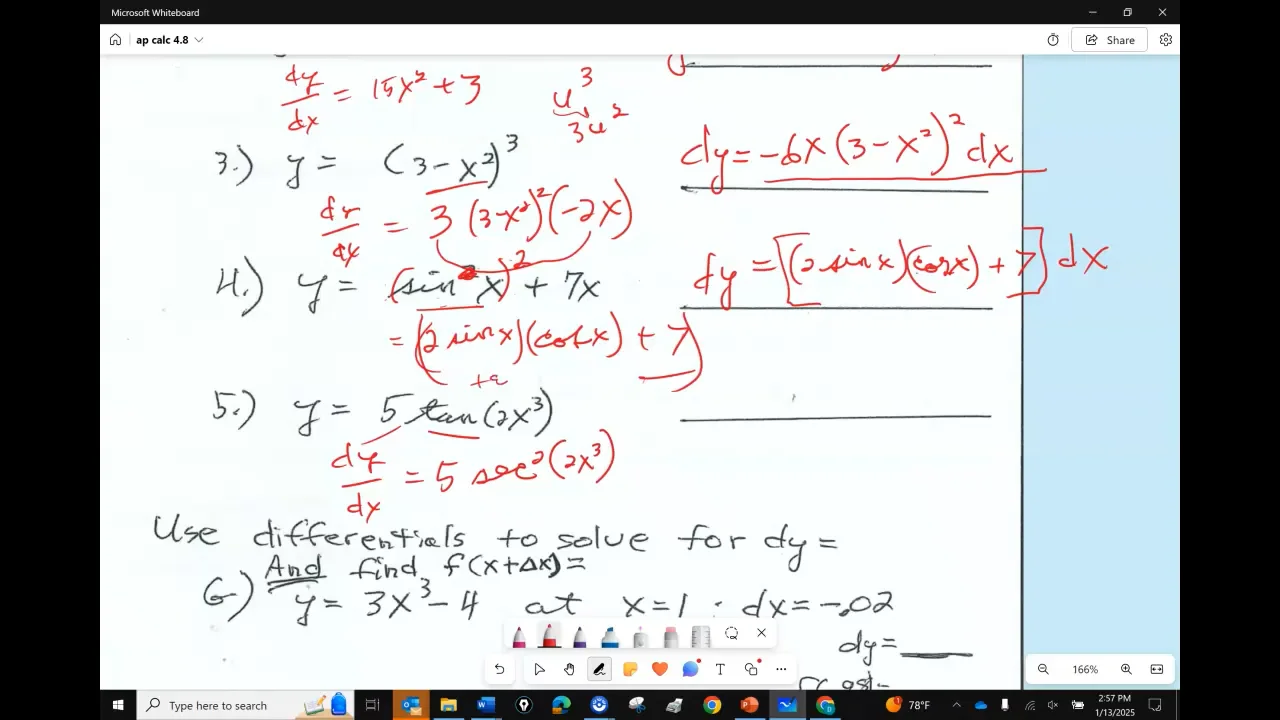 Microsoft Whiteboard
ap calc 4.8
Share
dy/dx = 15x² + 3
u³
3u²
3.) y = (3 - x²)³
dy = -6x(3 - x²)² dx
dy/dx = 3(3-x²)²(-2x)
4.) y = (sin x)² + 7x
dy = [(2 sin x)(cos x) + 7] dx
= (2 sin x)(cos x) + 7
5.) y = 5 tan(2x³)
dy/dx = 5 sec²(2x³)
Use differentials to solve for dy =
And find f(x+Δx) =
6) y = 3x³ - 4 at x = 1 : dx = -.02
dy =
166%
Type here to search
78°F
2:57 PM
1/13/2025